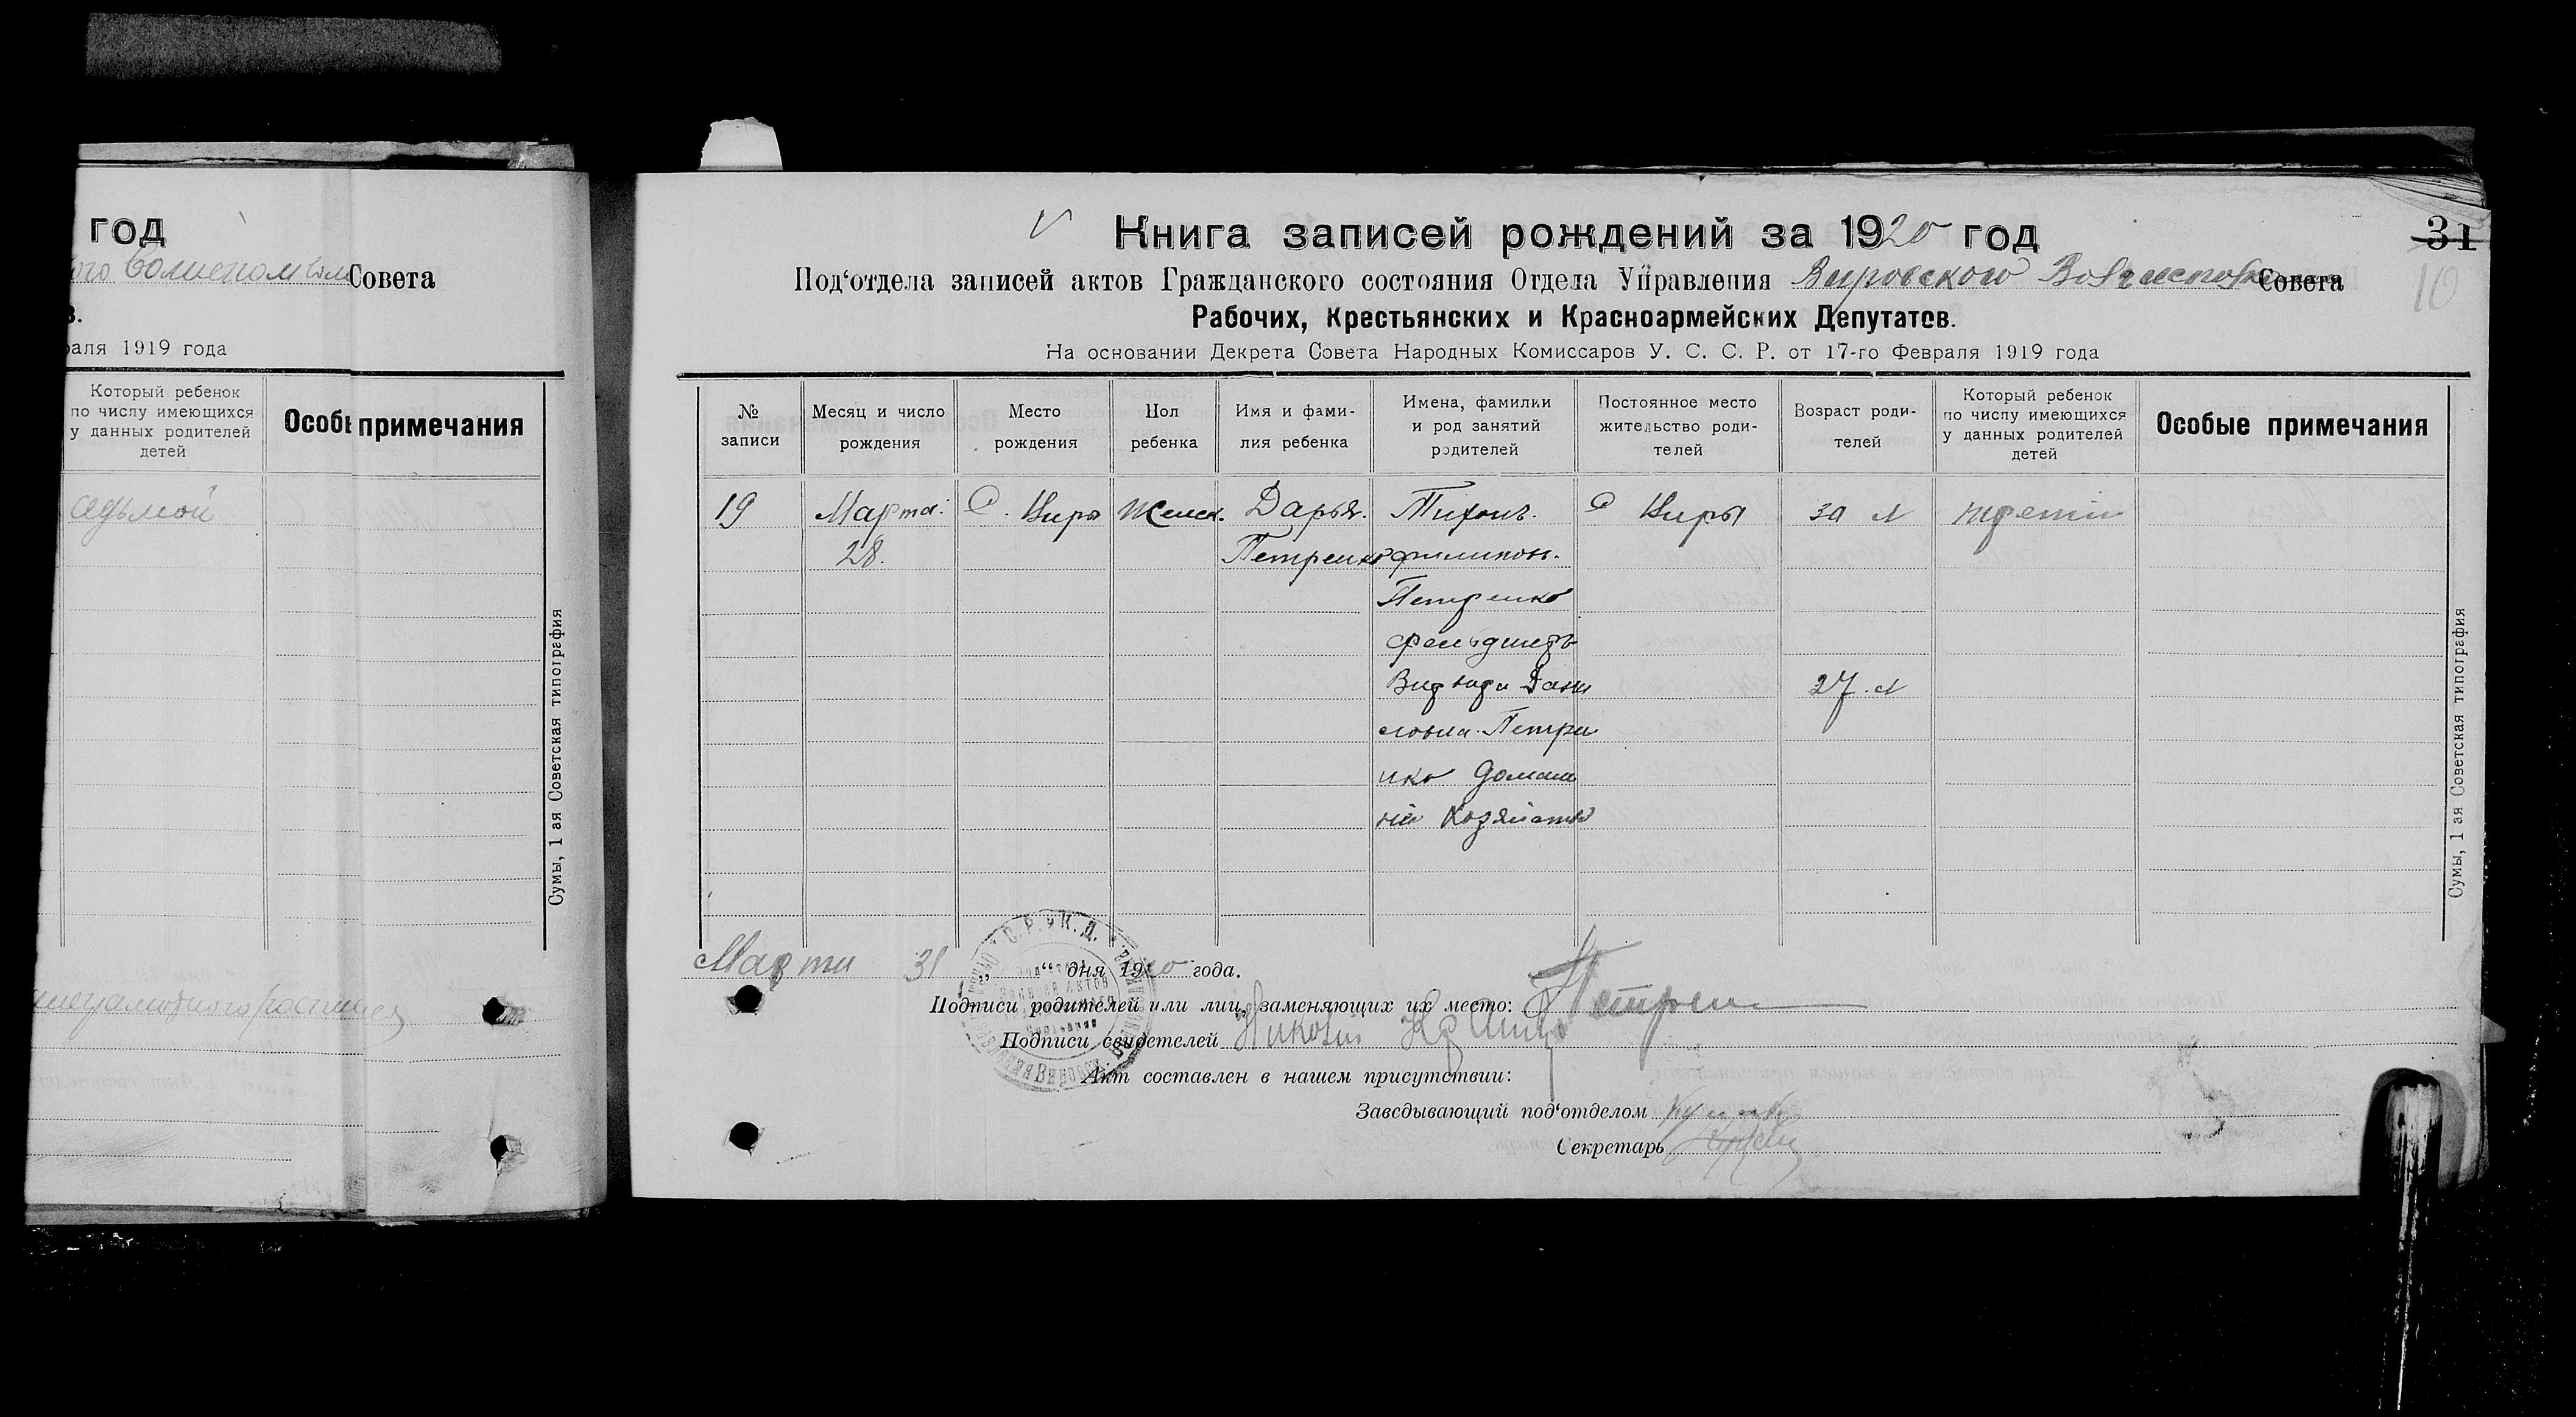 год
Совета
в.
раля 1919 года
Который ребенок
по числу имеющихся
у данных родителей
детей
Особы примечания
седьмой
Сумы, 1 ая Советская типография
Книга записей рождений за 1920 год
31
10
Под‘отдела записей актов Гражданского состояния Отдела Управления Вировского Совета
Рабочих, Крестьянских и Красноармейских Депутатов.
На основании Декрета Совета Народных Комиссаров У. С. С. Р. от 17-го Февраля 1919 года
№
записи
Месяц и число
рождения
Место
рождения
Пол
ребенка
Имя и фами-
лия ребенка
Имена, фамилии
и род занятий
родителей
Постоянное место
жительство роди-
телей
Возраст роди-
телей
Который ребенок
по числу имеющихся
у данных родителей
детей
Особые примечания
19
Марта
28.
С. Виры
Женск.
Дарья.
Петренко
Тихонъ.
Филипов.
Петренко
Дани
ловна Петре
нко домаш
С Виры
27. л
третій
Сумы, 1 ая Советская типография
Марта 31 дня 1920 года.
Подписи родителей или лиц, заменяющих их место:
Подписи свидетелей Николай
Акт составлен в нашем присутствии:
Заведывающий под‘отделом
Секретарь